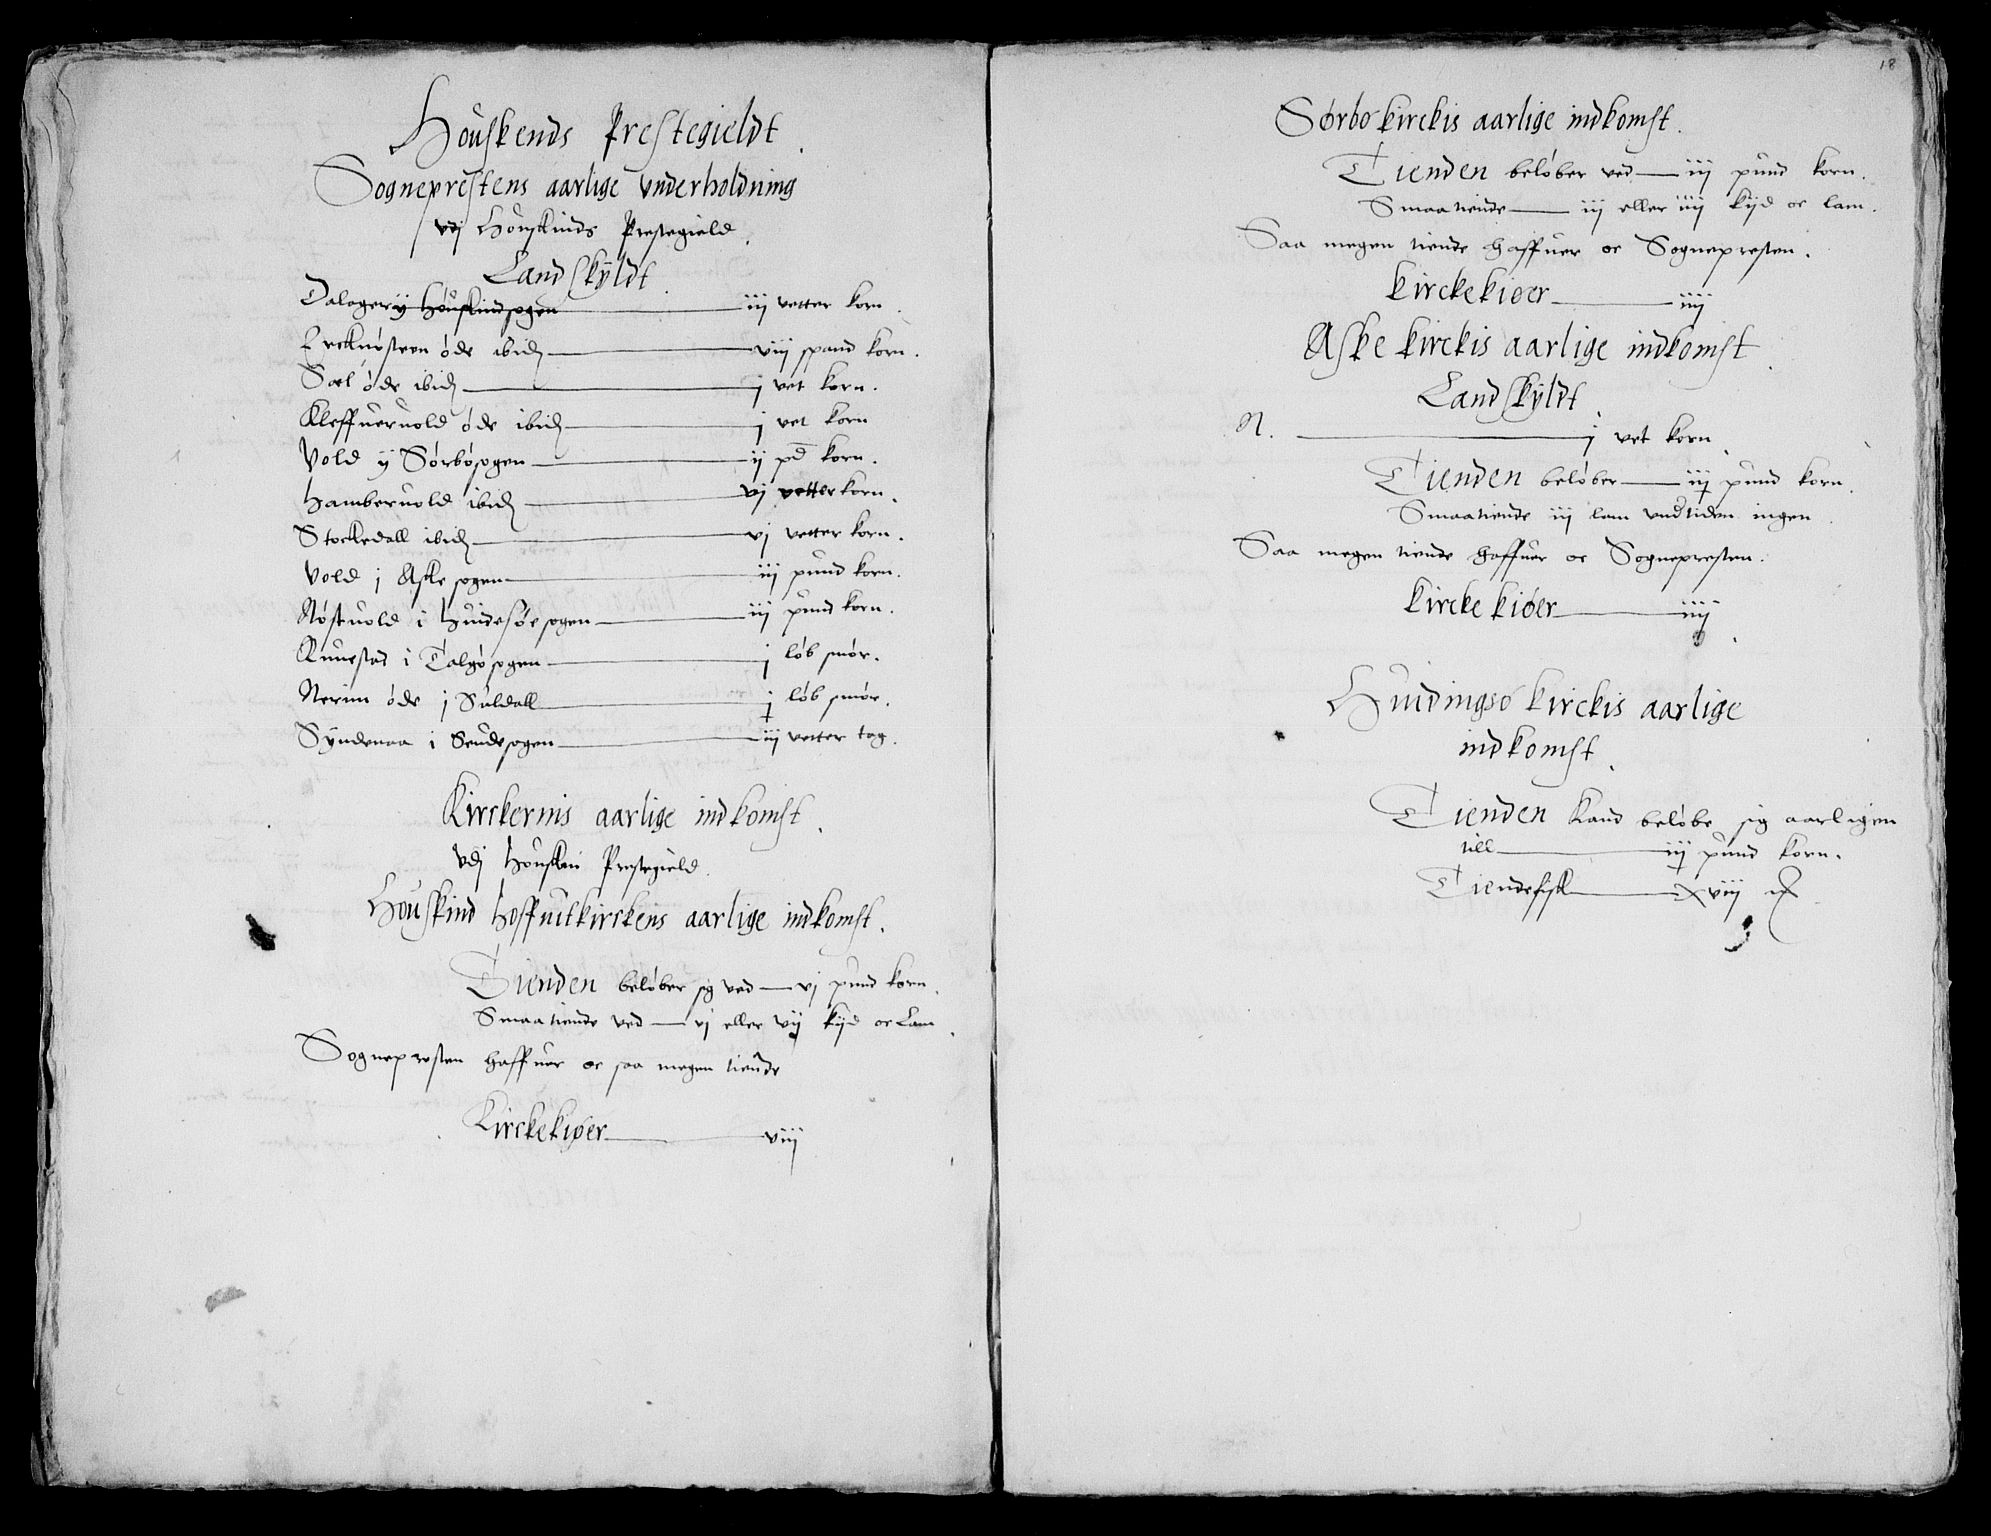 Houskends Prestegieldt.
Sogneprestens aarlige vnderholdning
vdj Houskinds Prestegield.
Landskyldt.
Dalager ij Høuskindsogen — iij vetter korn.
øde ibid — viij spand korn.
Sæl øde ibid — j vet korn.
Kleffueruold øde ibid — j vet korn
Vold ij Sørbøsogen — ij pd korn.
Hamberuold ibid — vj vetter korn.
Stockedall ibid — vj vetter korn.
Vold j Aske sogen — iij pund korn.
Nøstuold i Huidesøe sogen — iij pund korn.
Runestad i Talgøsogen — j løb smør.
Nerim øde j Suldall — j løb smør.
Syndenaa i Sendesogen — iij vetter tag.
Kirckernis aarlige indkomst.
vdj Houskin Prestegield.
Houskind Hoffuitkirckens aarlige indkomst.
Tienden beløber sig ved — vj pund korn.
Smaatiende ved — vj eller vij kijd oc Lam.
Sognepresten haffuer oc saa megen tiende
Kirckekiøer — viij
18
Sørbo kirckis aarlige indkomst.
Tienden beløber ved — iij pund korn.
Smaatiende — iij eller iiij kijd oc lam.
Saa megen tiende haffuer oc Sognepresten.
Kirckekiøer — iiij
Aske kirckis aarlige indkomst.
Landskyldt.
N. — j vet korn.
Tienden beløber — iij pund korn.
Smaatiende iij lam vndtiden ingen.
Saa megen tiende haffuer oc Sognepresten.
Kirckekiøer — iiij.
Huidingsø kirckis aarlige
indkomst.
Tienden kand beløbe sig aarligen
till — iij pund korn.
Tiendefisk — xviij